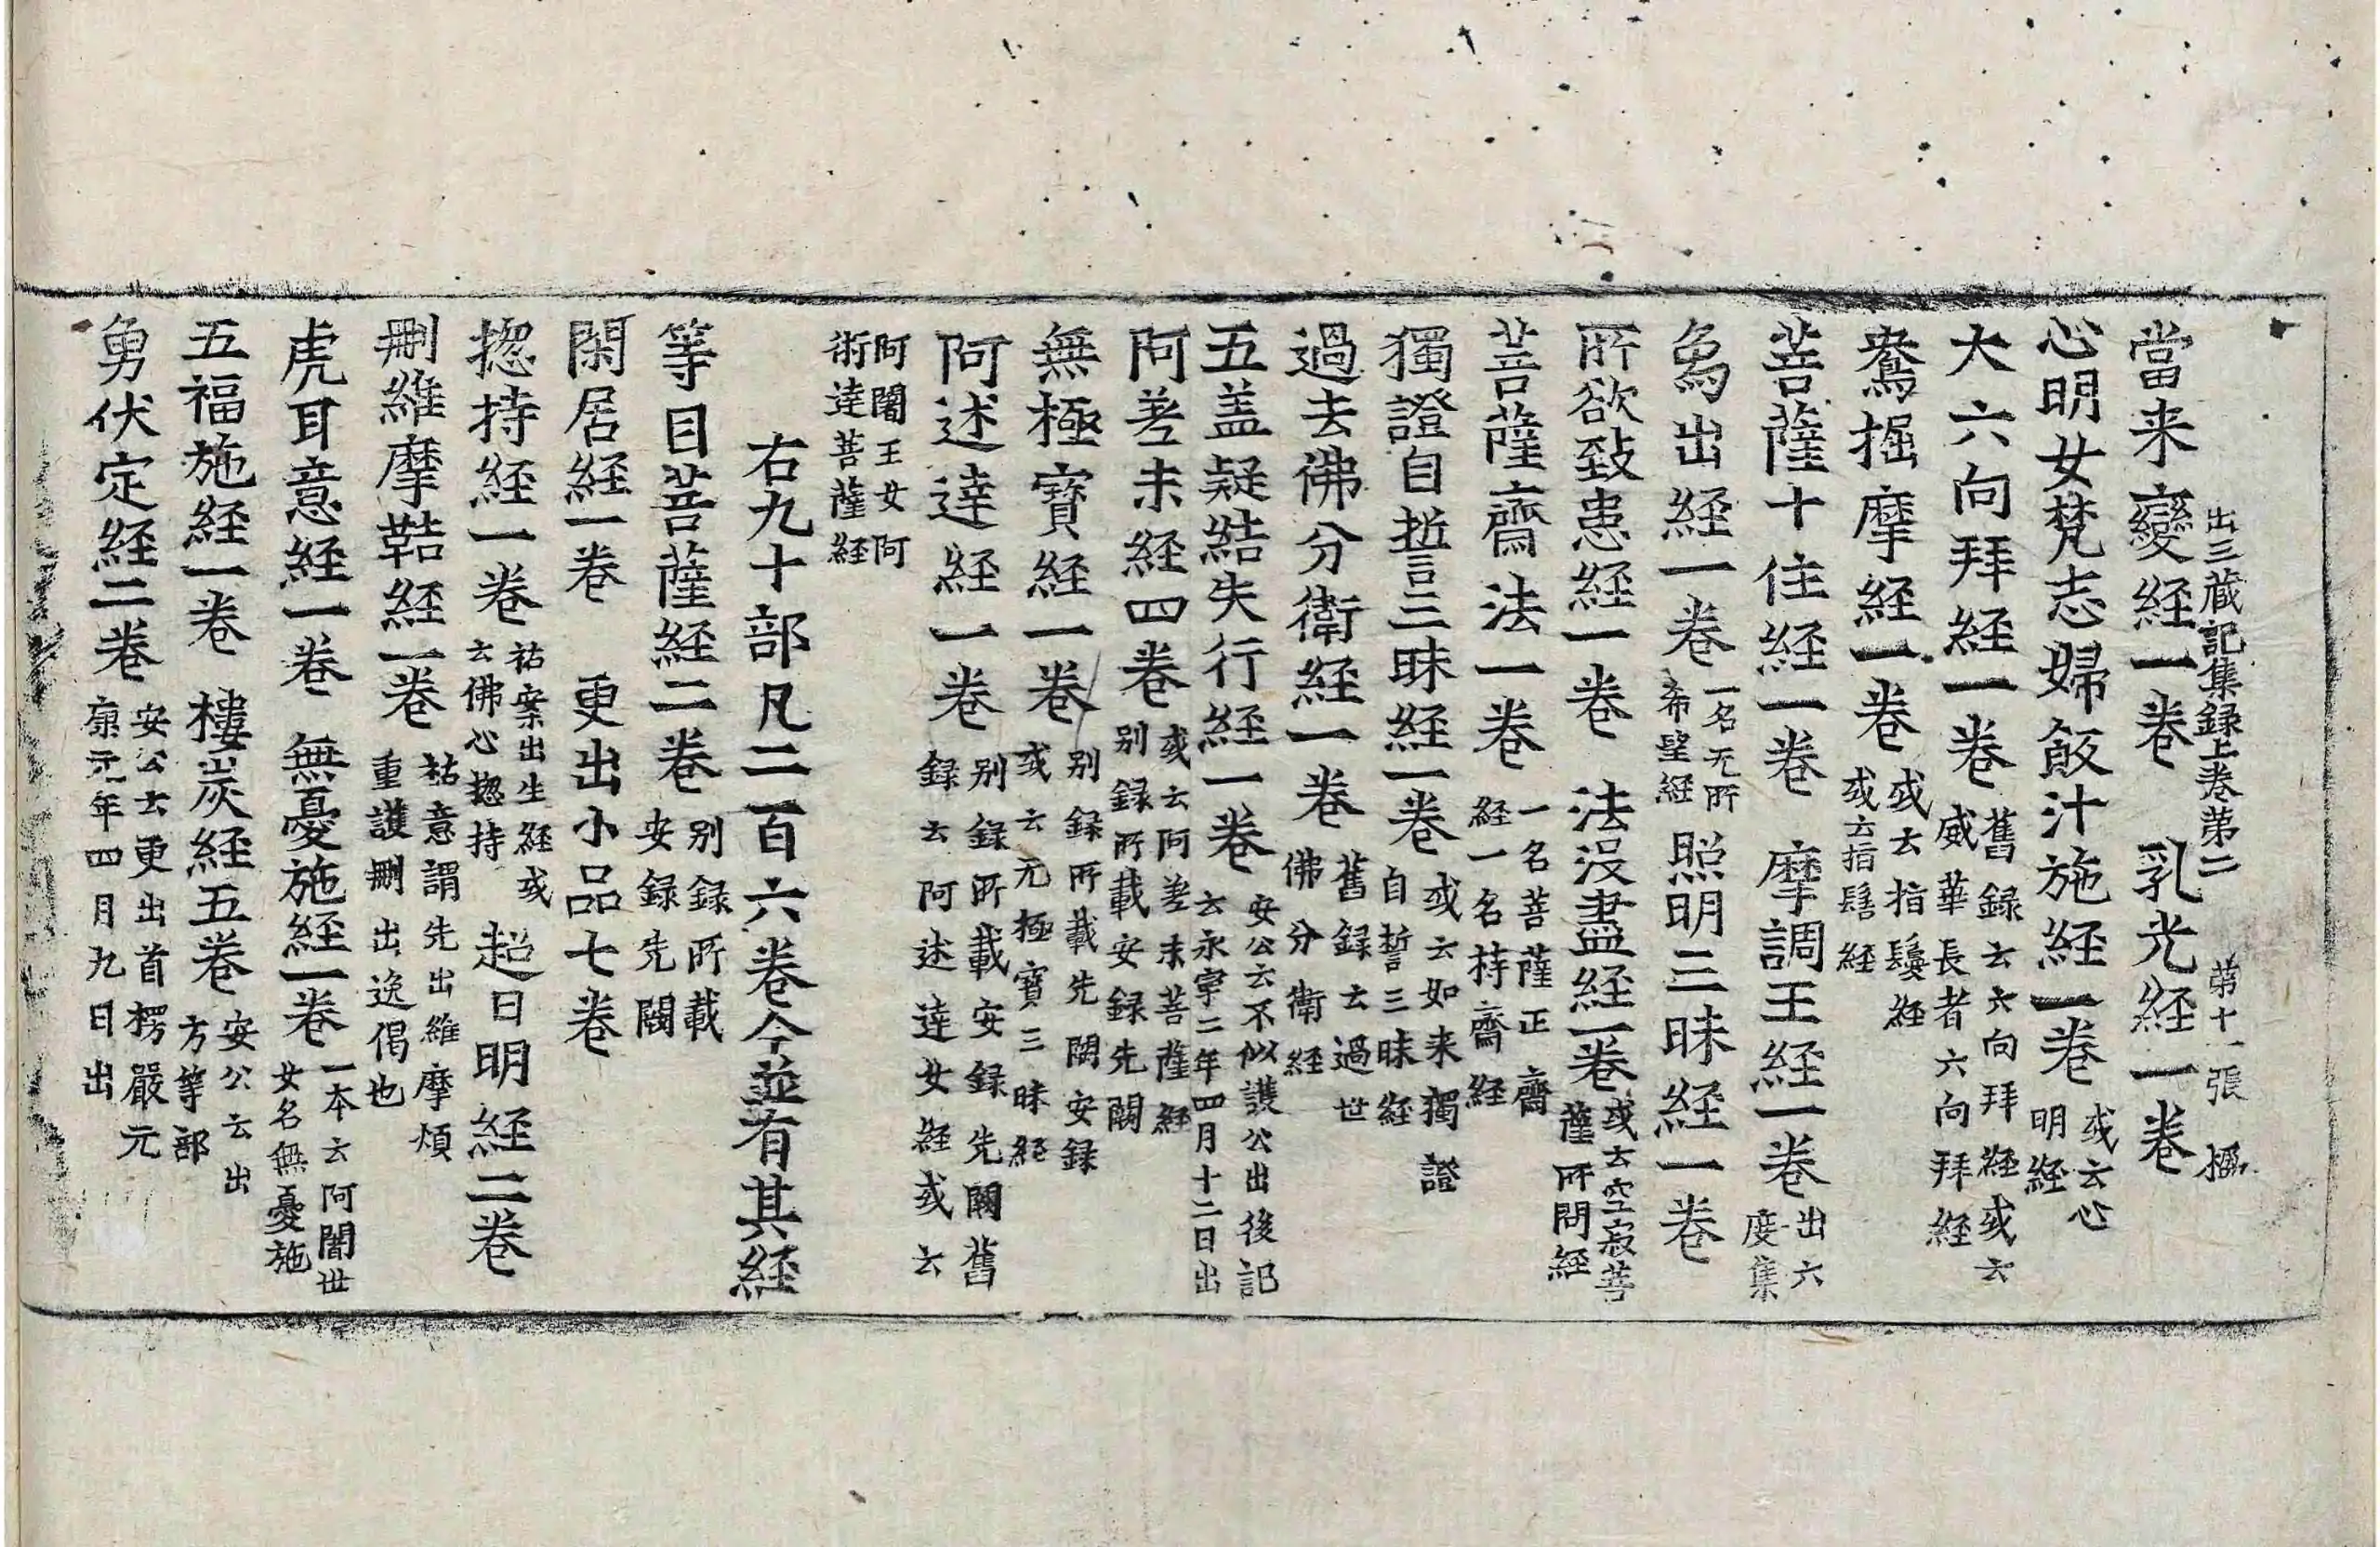 出三藏記集録上卷苐二 苐十一張
當来變経一卷 乳光経一卷
心明女梵志婦飯汁施経一卷 或云心明経
大六向拜経一卷 舊録云六向拜経或云威華長者六向拜経
鴦掘摩経一卷 或云指鬘経或云指髻経
菩薩十住経一卷 摩調王経一卷 出六度集
象出経一卷 一名无所希望経 照明三昧経一卷
所欲致患経一卷 法没盡経一卷 或云空寂菩薩所問経
菩薩齋法一卷 一名菩薩正齋経一名持齋経
獨證自誓三昧経一卷 或云如来獨證自誓三昧経
過去佛分衛経一卷 舊録云過世佛分衛経
五盖疑結失行経一卷 安公云不似護公出後記云永寧二年四月十二日出
阿差末経四卷 或云阿差末菩薩経別録所載安録先闕
無極寳経一卷 別録所載先闕安録或云无極寳三昧経
阿述達経一卷 別録所載安録先闕舊録云阿述達女経或云
阿闍王女阿術達菩薩経
右九十部凡二百六卷今並有其経
等目菩薩経二卷 別録所載安録先闕
閑居経一卷 更出小品七卷
揔持経一卷 祐案出生経或云佛心揔持 超日明経二卷
刪維摩鞊経一卷 祐意謂先出維摩煩重護刪出逸偈也
虎耳意経一卷 無憂施経一卷 一本云阿闍世女名無憂施
五福施経一卷 樓炭経五卷 安公云出方等部
勇伏定経二卷 安公云更出首楞嚴元康元年四月九日出